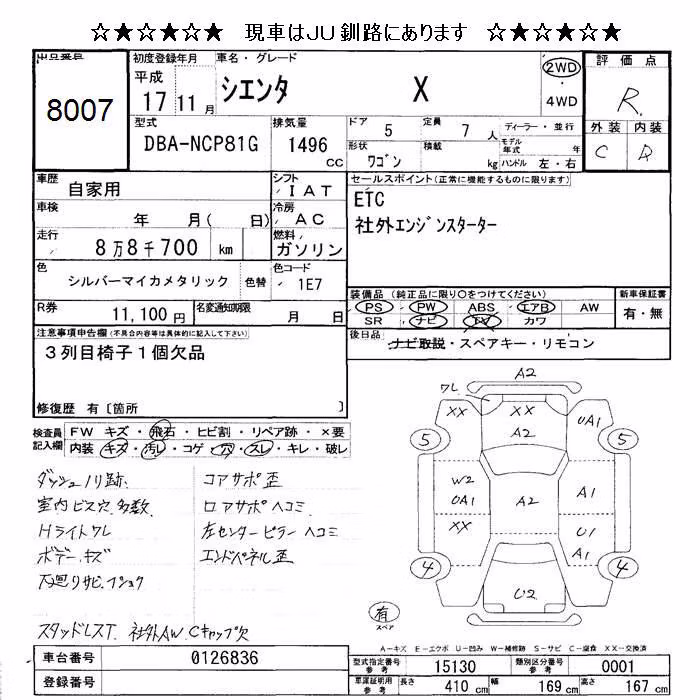 ☆★☆★☆★ 現車はJU釧路にあります ☆★☆★☆★
出品番号
8007
初度登録年月
平成
17 11月
車名・グレード
シエンタ X
2WD
・
4WD
評価点
R
外装 内装
C D
型式
DBA-NCP81G
排気量
1496
cc
ドア 5
定員 7人
ディーラー・並行
形状 ワゴン
積載 kg
モデル年式 年
ハンドル 左・右
車歴
自家用
シフト
IAT
セールスポイント(正常に機能するものに限ります)
ETC
社外エンジンスターター
車検
年 月( 日)
冷房
AC
走行
8万8千700 km
燃料
ガソリン
色
シルバーマイカメタリック
色替
色コード
1E7
R券
11,100円
名変通知期限
月 日
装備品 (純正品に限り○をつけてください)
PS PW ABS エアB AW
SR ナビ TV カワ
新車保証書
有・無
後日品
ナビ取説・スペアキー・リモコン
注意事項申告欄(不具合内容等は具体的に記入して下さい)
3列目椅子1個欠品
修復歴 有〔箇所 〕
検査員記入欄
FW キズ・飛石・ヒビ割・リペア跡・×要
内装 キズ・汚レ・コゲ・穴・スレ・キレ・破レ
ダッシュノリ跡
室内ビス穴多数
Hライトワレ
ボデーキズ
下廻りサビ・フショク
コアサポ歪
ロアサポヘコミ
左センターピラーヘコミ
エンドパネル歪
スタッドレスT 社外AW Cキャップ欠
A2
ワレ
XX XX UA1
A2
5 5
W2
UA1
A2
A1
XX
U1
A1
4 4
U2
有
スペア
A-キズ E-エクボ U-凹み W-補修跡 S-サビ C-腐食 XX-交換済
車台番号
0126836
登録番号
型式指定番号
参考
15130
類別区分番号
参考
0001
車庫証明用
参考
長さ 410 cm
幅 169 cm
高さ 167 cm